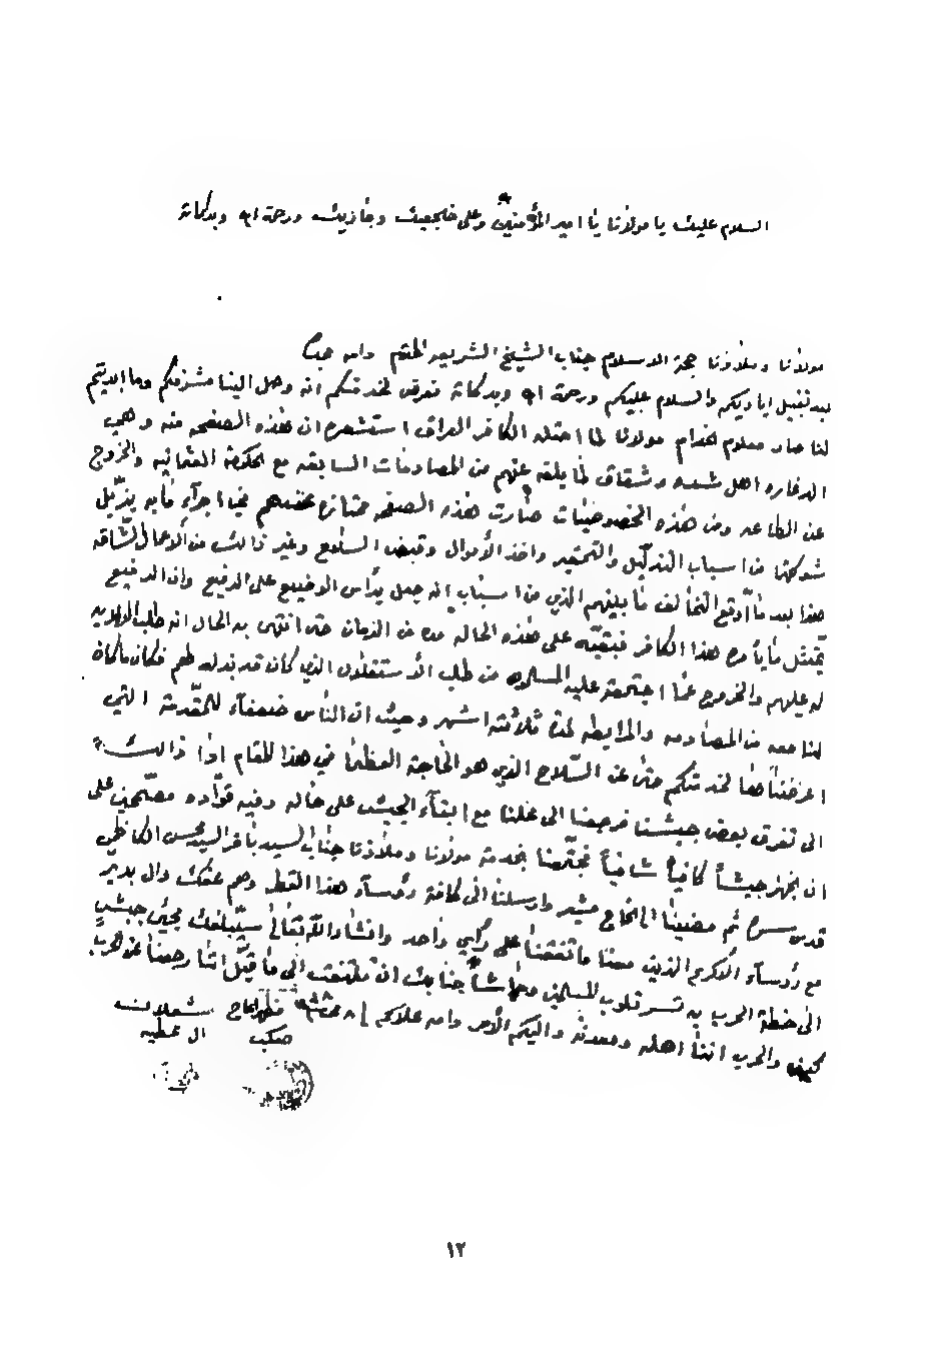 السلام عليك يا مولانا يا امير المؤمنين وعلى ضجيعيك وجاريك ورحمة الله وبركاته
مولانا وملاذنا حجة الاسلام جناب الشيخ الشريعه المحترم دامه
بعد تقبيل اياديكم والسلام عليكم ورحمة الله وبركاته نعرض لخدمتكم انه وصل الينا مشرفكم وما ابديتم
لنا صار معلوم لخدام مولانا لما احتله الكافر العراق استشعر ان هذه الصفحه منه وهي
الدغاره اهل شعبه وشقاق لما بلغه عنهم من المصادمات السابقه مع الحكومة العثمانيه والخروج
عن الطاعه ومن هذه الخصوصيات صارت هذه الصفحه ممتازه عندهم في اجراء ما به يذيل
شوكتنا من اسباب التذليل والتحقير واخذ الأموال وقبض السلاح وغير ذالك من الأعمال الشاقه
هذا بعد ما اوقع التخالف ما بينهم الذي من اسباب انه جعل يرأس الوضيع على الرفيع وان الرفيع
يمتثل هذا الكافر فبقيت على هذه الحاله مده من الزمان حتى انتهى به الحال انه طلب
له عليهم والخروج عما اجتمعت عليه المسلمين من طلب الاستقلال الذي كان قد بذله لهم فكان ما كان
لنا معه من المصادمه والمرابطه لمدة ثلاثة اشهر وحيث ان الناس ضعفآء للمقدمة التي
اعرضناها لخدمتكم حتى عن السلاح الذي هو الحاجة العظما في هذا المقام اذا ذالك
الى تفرق بعض جيشنا فرجعنا الى محلنا مع ابقآء الجيش على حاله وفيه قواده مصممين على
ان نجهز جيشاً كافياً شافياً فجتمعنا بخدمة مولانا وملاذنا جناب السيد باقر السيد محسن الكاظمي
قدس سره ثم مضينا الى الحاج وارسلنا الى كافة رؤسآء هذا القطر وهم عفك وال بدير
مع رؤسآء الأكرع الذين معنا ما تفقنا على رأي واحد وانشاء الله تعالى سيبلغك مجئ جيش
الى خطة الحرب به تسر قلوب المسلمين وحاشا جنابك ان تلتفت الى ما قيل اننا رجعنا عن الحرب
كيف والحرب اننا اهله ومعدنه واليكم الأمر دامه علاكم
مظهر الحاج صكب
شعلان ال عطيه
١٢